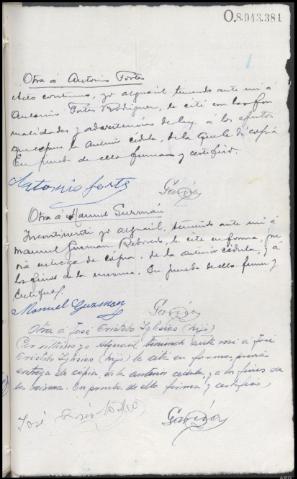 O.8.043.381
Otra á Antonio Fortes
Acto continuo, yo alguacil teniendo ante mi a
Antonio Fortes Rodriguez, le cité con las for
malidades y advertencias de ley, á los efectos
que expresa la anterior cédula, de la que le dí copia
En prueba de ello firma y certifico.
Antonio forte
Otra á Manuel Guzmán
Incontinenti yo alguacil, teniendo ante mi á
Manuel Guzman, le cite en forma, pre
via entrega de copia, de la anterior cédula, y á
los fines de la misma. En prueba de ello firma y
certifico.
Manuel Guzman
Otra á José Iglesias (hijo)
Por ultimo yo Alguacil teniendo ante mi a José
Iglesias (hijo) le cité en forma, previa
entrega de copia de la anterior cedula, y a los fines de
la misma. En prueba de ello firma, y certifico,
José